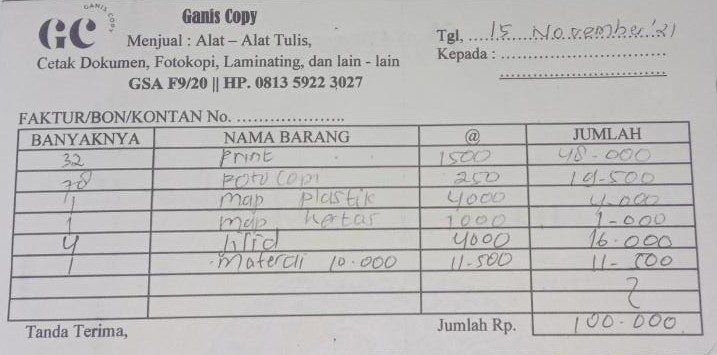 GC GANIS COPY
Ganis Copy
Menjual : Alat – Alat Tulis,
Cetak Dokumen, Fotokopi, Laminating, dan lain - lain
GSA F9/20 || HP. 0813 5922 3027
Tgl, 15 November '21
Kepada :
FAKTUR/BON/KONTAN No.
BANYAKNYA NAMA BARANG @ JUMLAH
32 Print 1500 48-000
78 Poto Copi 250 19-500
1 map plastik 4000 4-000
1 map kertas 1000 1-000
4 jilid 4000 16.000
1 materai 10.000 11-500 11-500
Tanda Terima, Jumlah Rp. 100.000